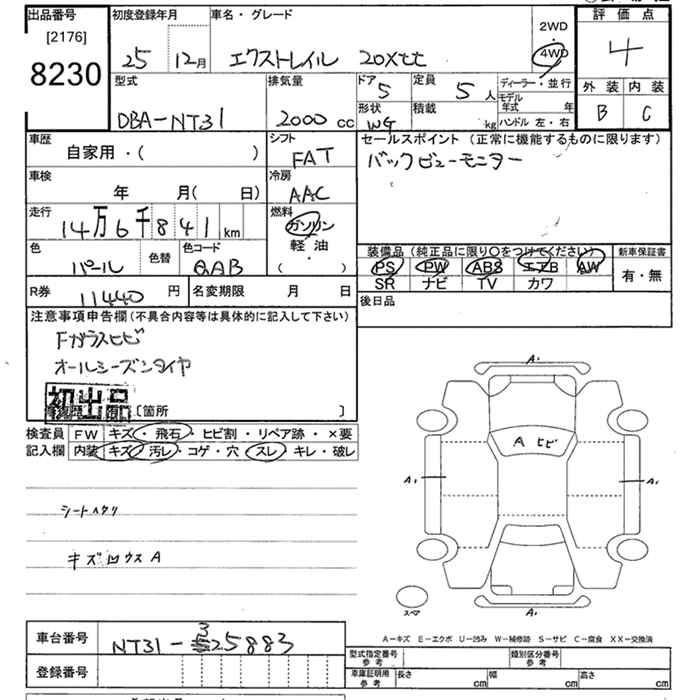 出品番号 初度登録年月 車名・グレード 2WD・4WD 評価点
[2176] 8230 25 12月 エクストレイル 20Xtt 4
型式 排気量 ドア 定員 ディーラー・並行 外装 内装
DBA-NT31 2000cc 5 5人 モデル年式 年 B C
形状 積載 ハンドル 左・右
WG kg
車歴 シフト セールスポイント (正常に機能するものに限ります)
自家用・( ) FAT バックビューモニター
車検 冷房
年 月( 日) AAC
走行 燃料
14万6千841km ガソリン
軽油・( )
色 色替 色コード 装備品 (純正品に限り〇をつけてください) 新車保証書
パール QAB PS PW ABS エアB AW 有・無
SR ナビ TV カワ
R券 11440円 名変期限 月 日 後日品
注意事項申告欄 (不具合内容等は具体的に記入して下さい)
Fガラスヒビ
オールシーズンタイヤ
初出品
[箇所 ]
検査員 FW キズ・飛石・ヒビ割・リペア跡・×要
記入欄 内装 キズ・汚レ・コゲ・穴・スレ・キレ・破レ
シートヘタリ
キズ凹ウスA
A₁
A ヒビ
A₁ A₁
スペア
A₁
A-キズ E-エクボ U-凹み W-補修跡 S-サビ C-腐食 XX-交換済
車台番号 NT31-325883
登録番号
型式指定番号 参考 類別区分番号 参考
車庫証明用 参考 長さ cm 幅 cm 高さ cm